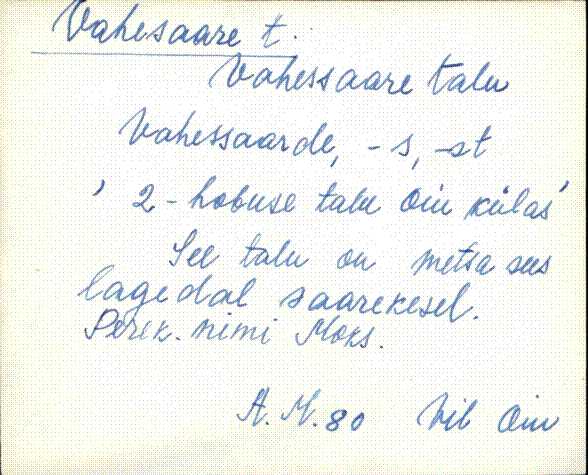 Vahesaare t.
Vahessaare talu
Vahessaarde, -s, -st
' 2-hobuse talu Õin külas'
See talu on metsa sees
lagedal saarekesel.
Perek. nimi Moks.
A. M. 80 Vil Õin